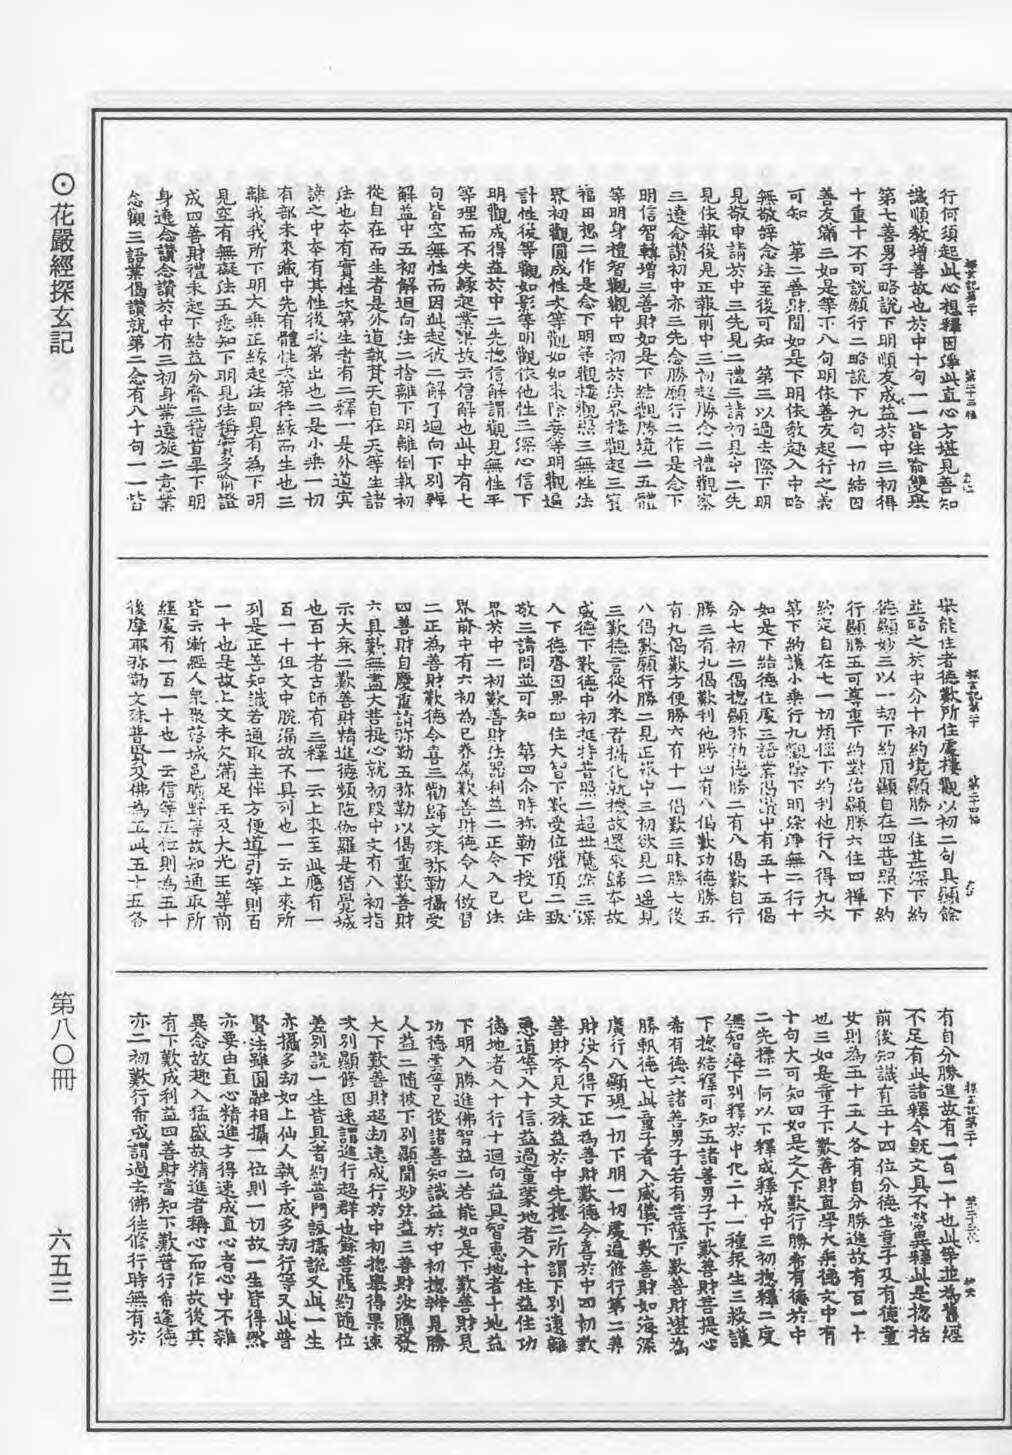 行何須起此心想釋因淨此直心方堪見善知
識順教增善故也於中十句一一皆法喻雙舉
第七善男子略說下明順友成益於中三初得
十重十不可說願行二略說下九句一切結因
善友滿三如是等下八句明依善友起行之義
可知 第二善財聞如是下明依教趣入中略
無敬辭念法至後可知 第三以過去際下明
見敬申請於中三先見二禮三請初見中二先
見依報後見正報前中三初起勝念二禮觀察
三遶念讚初中亦三先念勝願行二作是念下
明信智轉增三善財如是下結觀勝境二五體
等明身禮智觀觀中四初於法界樓觀起三寶
福田想二作是念下明等觀樓觀三無性法
界初觀圓成性次等觀如如來除妄等明觀遍
計性後等觀如影等明觀依他性三深心信下
明觀成得益於中二先總信解謂觀見無性平
等理而不失緣起業果故云信解也此中有七
句皆空無性而因此起彼二解了迴向下別辨
解益中五初解迴向法二捨離下明離倒執初
從自在而生者是外道執其天自在天等生諸
法也本有實性次第生者有二釋一是外道冥
諦之中本有其性後次第出也二是小乘一切
有部未來藏中先有體性次第待緣而生也三
離我我所下明大乘正緣起法四見有為下明
見空有無礙法五悉知下明見法稱實多喻證
成四善財禮未起下結益分齊三稽首畢下明
身遶念讚念讚於中有三初身業遶旋二意業
念觀三語業偈讚就第二念有八十句一一皆
舉能住者德歎所住處樓觀以初二句具顯餘
並略之於中分十初約境顯勝二住甚深下約
德顯妙三以一劫下約用顯自在四普照下約
行顯勝五可尊重下約對治顯勝六住四禪下
約定自在七一切煩惱下約利他行八得九次
第下約護小乘行九觀陰下明染淨無二行十
如是下結德住處三語業偈讚中有五十五偈
分七初二偈總顯彌勒德勝二有八偈歎自行
勝三有九偈歎利他勝四有八偈歎功德勝五
有九偈歎方便勝六有十一偈歎三昧勝七後
八偈歎願行勝二見正報中三初欲見二遙見
三歎德言從外來者攝化就機故還來歸本故
威德下歎德中初挺特普照二超世魔染三深
入下德齊因果四住大智下歎受位灌頂二致
敬三請問並可知 第四介時彌勒下授已法
界於中二初歎善財法器利益二正令入已法
界前中有六初為已眷屬歎善財德令人倣習
二正為善財歎德令喜三勸歸文殊彌勒攝受
四善財自慶重請彌勒五彌勒以偈重歎善財
六具歎無盡大菩提心就初段中文有八初指
示大眾二歎善財精進德頻陀伽羅是猶覺城
也百十者古師有三釋一云上來至此應有一
百一十但文中脫漏故不具列也一云上來所
列是正善知識若通取主伴方便導引等則百
一十也是故上文未欠滿足王及大光王等前
皆云漸經人眾聚落城邑曠野等故知通取所
經處有一百一十也一云信等五位則為五十
後摩耶彌勒文殊普賢及佛為五此五十五各
有自分勝進故有一百一十也此等並為舊經
不足有此諸釋今既文具不勞異釋此是總括
前後知識有五十四位分德生童子及有德童
女則為五十五人各有自分勝進故有百一十
也三如是童子下歎善財直學大乘德文中有
十句大可知四如是之人下歎行勝希有德於中
二先標二何以下釋成釋成中三初總釋二度
無智海下別釋於中化二十一種眾生三救護
下總結釋可知五諸善男子下歎善財菩提心
希有德六諸善男子若有菩薩下歎善財堪為
勝軌德七此童子者入威儀下歎善財如海深
廣行八顯現一切下明一切處遍修行第二善
財汝今得下正為善財歎德令喜於中四初歎
善財本見文殊益於中先總二所謂下別遠離
惡道等入十信益過童蒙地者入十住益住功
德地者入十行十迴向益具智惠地者十地益
下明入勝進佛智益二若能如是下歎善財見
功德雲等已後諸善知識益於中初總辨見勝
人益二隨彼下別顯聞妙法益三善財汝應發
大下歎善財超劫速成行於中初總舉得果速
次別顯修因速謂進行超群也餘菩薩約隨位
差別說一生皆具者約普門該攝說又此一生
亦攝多劫如上仙人執手成多劫行等又此普
賢法雖圓融相攝一位則一切故一生皆得然
亦要由直心精進方得速成直心者心中不雜
異念故趣入猛盛故精進者稱心而作故後其
有下歎成利益四善財當知下歎普行希逢德
亦二初歎行希成謂過去佛往修行時無有於
⊙花嚴經探玄記
第八〇冊
六五三